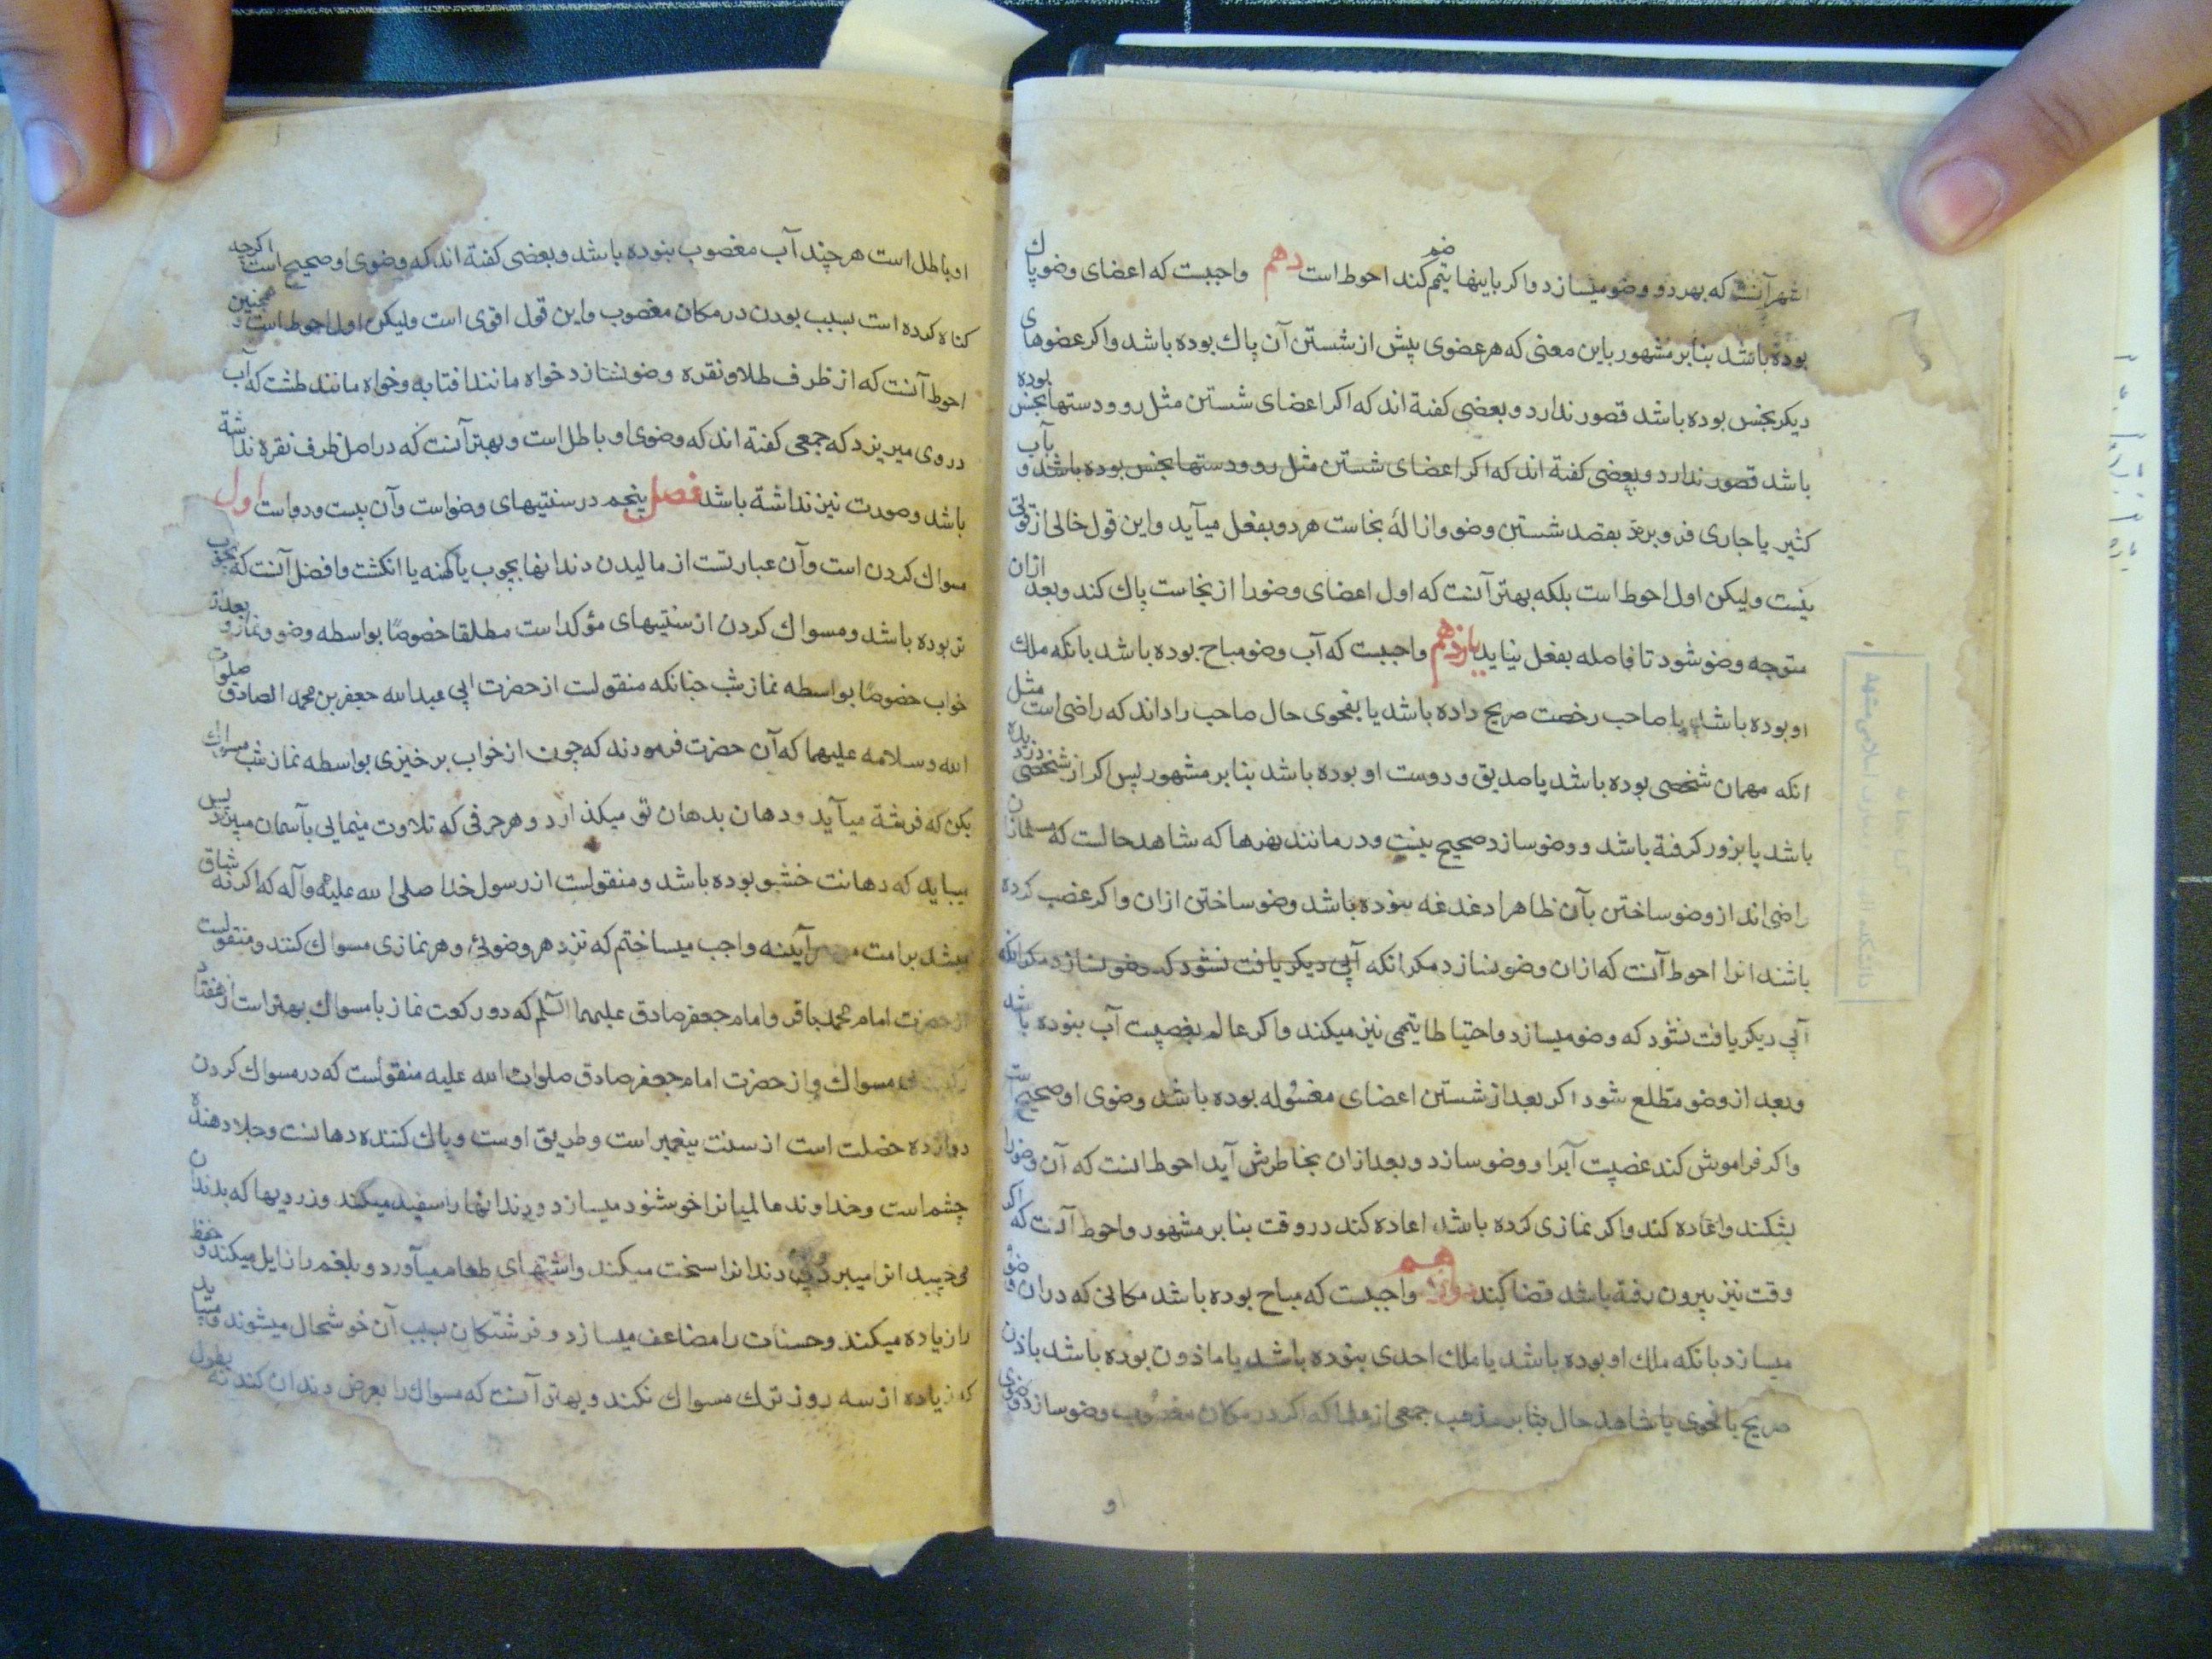 اشهر آنست که بهر دو وضو میسازد و اکر باینها تیمم ضم کند احوط است دهم واجبست که اعضای وضو پاك
بوده باشد بنابر مشهور باین معنی که هر عضوی پیش از شستن آن پاك بوده باشد و اکر عضوهای
دیکر نجس بوده باشد قصور ندارد و بعضی کفته اند که اکر اعضای شستن مثل رو و دستها نجس بوده
باشد قصور ندارد و بعضی کفته اند که اکر اعضای شستن مثل رو و دستها نجس بوده باشد و بآب
کثیر یا جاری فرو برد بقصد شستن وضو و ازالهٔ نجاست هر دو بفعل میآید و این قول خالی از قوتی
نیست ولیکن اول احوط است بلکه بهتر آنست که اول اعضای وضو را از نجاست پاك کند و بعد ازان
متوجه وضو شود تا فاصله بفعل نیاید یازدهم واجبست که آب وضو مباح بوده باشد بانکه ملك
او بوده باشد یا صاحب رخصت صریح داده باشد یا بفحوی حال صاحب را داند که راضی است مثل
انکه مهمان شخصی بوده باشد یا صدیق و دوست او بوده باشد بنابر مشهور پس اکر از شخصی دزدیده
باشد یا بزور کرفته باشد و وضو سازد صحیح نیست و در مانند نهرها که شاهد حالست که مسلمانان
راضی اند از وضو ساختن بآن ظاهرا دغدغه نبوده باشد وضو ساختن ازان و اکر غصب کرده
باشند انرا احوط آنست که ازان وضو نسازد مکر انکه آبی دیکر یافت نشود که وضو بسازد مکر انکه
آبی دیکر یافت نشود که وضو میسازد و احتیاطا تیممی نیز میکند و اکر عالم بغصبیت آب نبوده باشد
و بعد از وضو مطلع شود اکر بعد از شستن اعضای مغسوله بوده باشد وضوی او صحیح است
و اکر فراموش کند غصبیت آبرا و وضو سازد و بعد ازان بخاطرش آید احوط انست که آن وضو را
بشکند و اعاده کند و اکر نمازی کرده باشد اعاده کند در وقت بنابر مشهور و احوط آنست که اکر
وقت نیز بیرون رفته باشد قضا کند دوازدهم واجبست که مباح بوده باشد مکانی که دران وضو
میسازد بانکه ملك او بوده باشد یا ملك احدی نبوده باشد یا ماذون بوده باشد باذن
صریح یا فحوی یا شاهد حال بنابر مذهب جمعی از علما که اکر در مکان مغصوب وضو سازد وضوی
او
او باطل است هر چند آب مغصوب نبوده باشد و بعضی کفته اند که وضوی او صحیح است اکرچه
کناه کرده است بسبب بودن در مکان مغصوب و این قول اقوی است ولیکن اول احوط است و همچنین
احوط آنست که از ظرف طلا و نقره وضو نسازد خواه مانند افتابه و خواه مانند طشت که آب
در وی میریزد که جمعی کفته اند که وضوی او باطل است و بهتر آنست که در اصل ظرف نقره نداشته
باشد و صورت نیز نداشته باشد فصل پنجم در سنتیهای وضواست و آن بیست و دواست اول
مسواك کردن است و آن عبارتست از مالیدن دندانها بچوب یا کهنه یا انکشت و افضل آنست که بچوب
تر بوده باشد و مسواك کردن از سنتیهای مؤکداست مطلقا خصوصًا بواسطه وضو و نماز و بعد از
خواب خصوصًا بواسطه نماز شب چنانکه منقولست از حضرت ابی عبدالله جعفر بن محمد الصادق صلوات
الله وسلامه علیهما که آن حضرت فرمودند که چون از خواب برخیزی بواسطه نماز شب مسواك
بکن که فرشته میآید و دهان بدهان تو میکذارد و هر حرفی که تلاوت مینمایی بآسمان میبرد پس
میباید که دهانت خشبو بوده باشد و منقولست از رسول خدا صلی الله علیه وآله که اکر نه شاق
میشد بر امت من هر آینه واجب میساختم که نزد هر وضوئی و هر نمازی مسواك کنند و منقولست
از حضرت امام محمد باقر و امام جعفر صادق علیهما السلم که دو رکعت نماز با مسواك بهتر است از هفتاد
رکعت بی مسواك و از حضرت امام جعفر صادق صلوات الله علیه منقولست که در مسواك کردن
دوازده خصلت است از سنت پیغمبر است و طریق اوست و پاك کننده دهانست و جلا دهنده
چشم است و خداوند عالمیانرا خوشنود میسازد و دندانها را سفید میکند و زردیها که بدندان
می چسبد انرا میبرد و بن دندانرا سخت میکند و اشتهای طعام میآورد و بلغم را زایل میکند و حفظ
را زیاده میکند و حسنات را مضاعف میسازد و فرشتکان بسبب آن خوشحال میشوند و میباید
که زیاده از سه روز ترك مسواك نکند و بهتر آنست که مسواك را بعرض دندان کند نه بطول